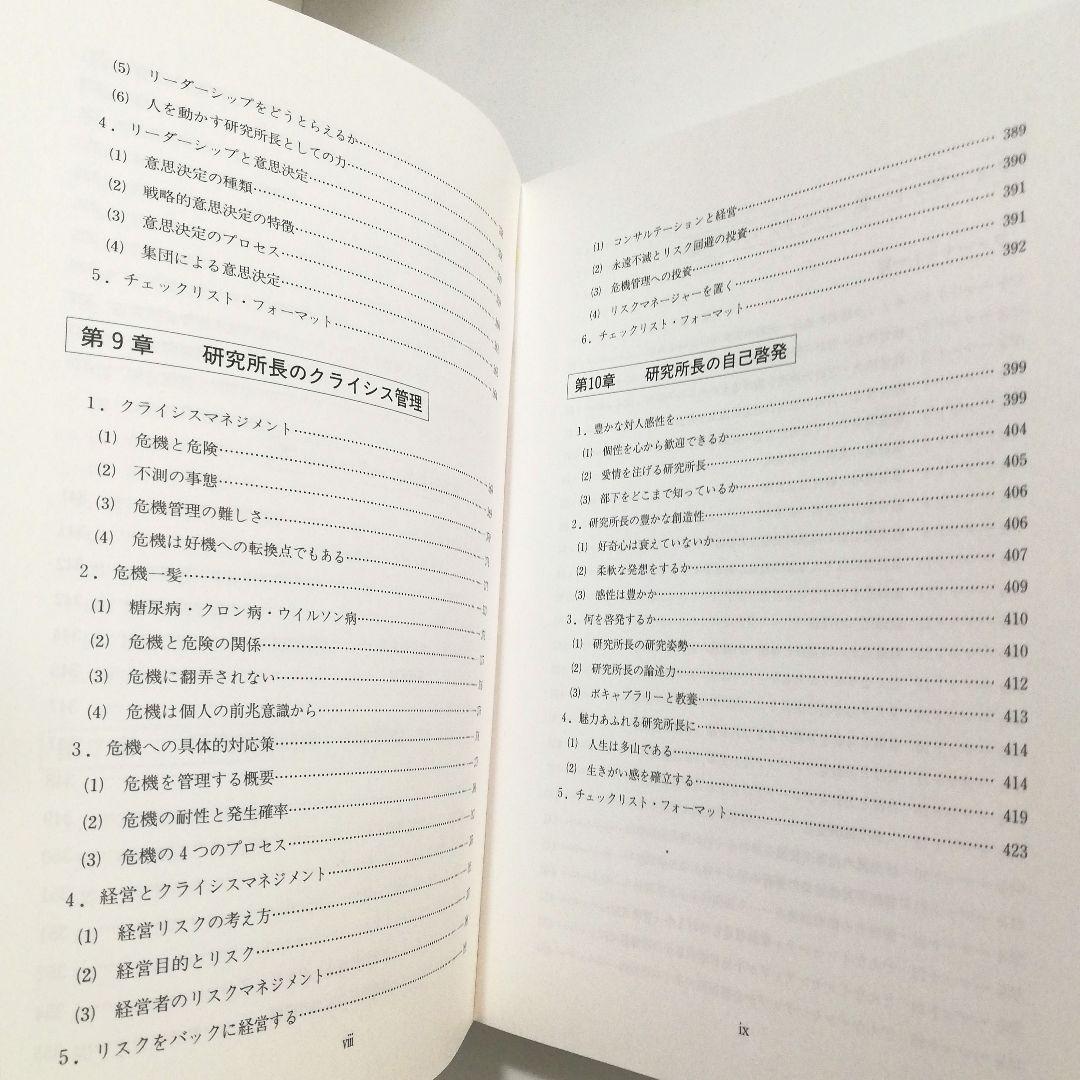 (5) リーダーシップをどうとらえるか
(6) 人を動かす研究所長としての力
4．リーダーシップと意思決定
(1) 意思決定の種類
(2) 戦略的意思決定の特徴
(3) 意思決定のプロセス
(4) 集団による意思決定
5．チェックリスト・フォーマット
第9章 研究所長のクライシス管理
1．クライシスマネジメント
(1) 危機と危険
(2) 不測の事態
(3) 危機管理の難しさ
(4) 危機は好機への転換点でもある
2．危機一髪
(1) 糖尿病・クロン病・ウイルソン病
(2) 危機と危険の関係
(3) 危機に翻弄されない
(4) 危機は個人の前兆意識から
3．危機への具体的対応策
(1) 危機を管理する概要
(2) 危機の耐性と発生確率
(3) 危機の4つのプロセス
4．経営とクライシスマネジメント
(1) 経営リスクの考え方
(2) 経営目的とリスク
(3) 経営者のリスクマネジメント
5．リスクをバックに経営する
viii
(1) コンサルテーションと経営 389
(2) 永遠不滅とリスク回避の投資 390
(3) 危機管理への投資 391
(4) リスクマネージャーを置く 391
6．チェックリスト・フォーマット 392
第10章 研究所長の自己啓発
1．豊かな対人感性を 399
(1) 個性を心から歓迎できるか 399
(2) 愛情を注げる研究所長 404
(3) 部下をどこまで知っているか 405
2．研究所長の豊かな創造性 406
(1) 好奇心は衰えていないか 406
(2) 柔軟な発想をするか 407
(3) 感性は豊かか 409
3．何を啓発するか 410
(1) 研究所長の研究姿勢 410
(2) 研究所長の論述力 412
(3) ボキャブラリーと教養 413
4．魅力あふれる研究所長に 414
(1) 人生は多山である 414
(2) 生きがい感を確立する 419
5．チェックリスト・フォーマット 423
ix